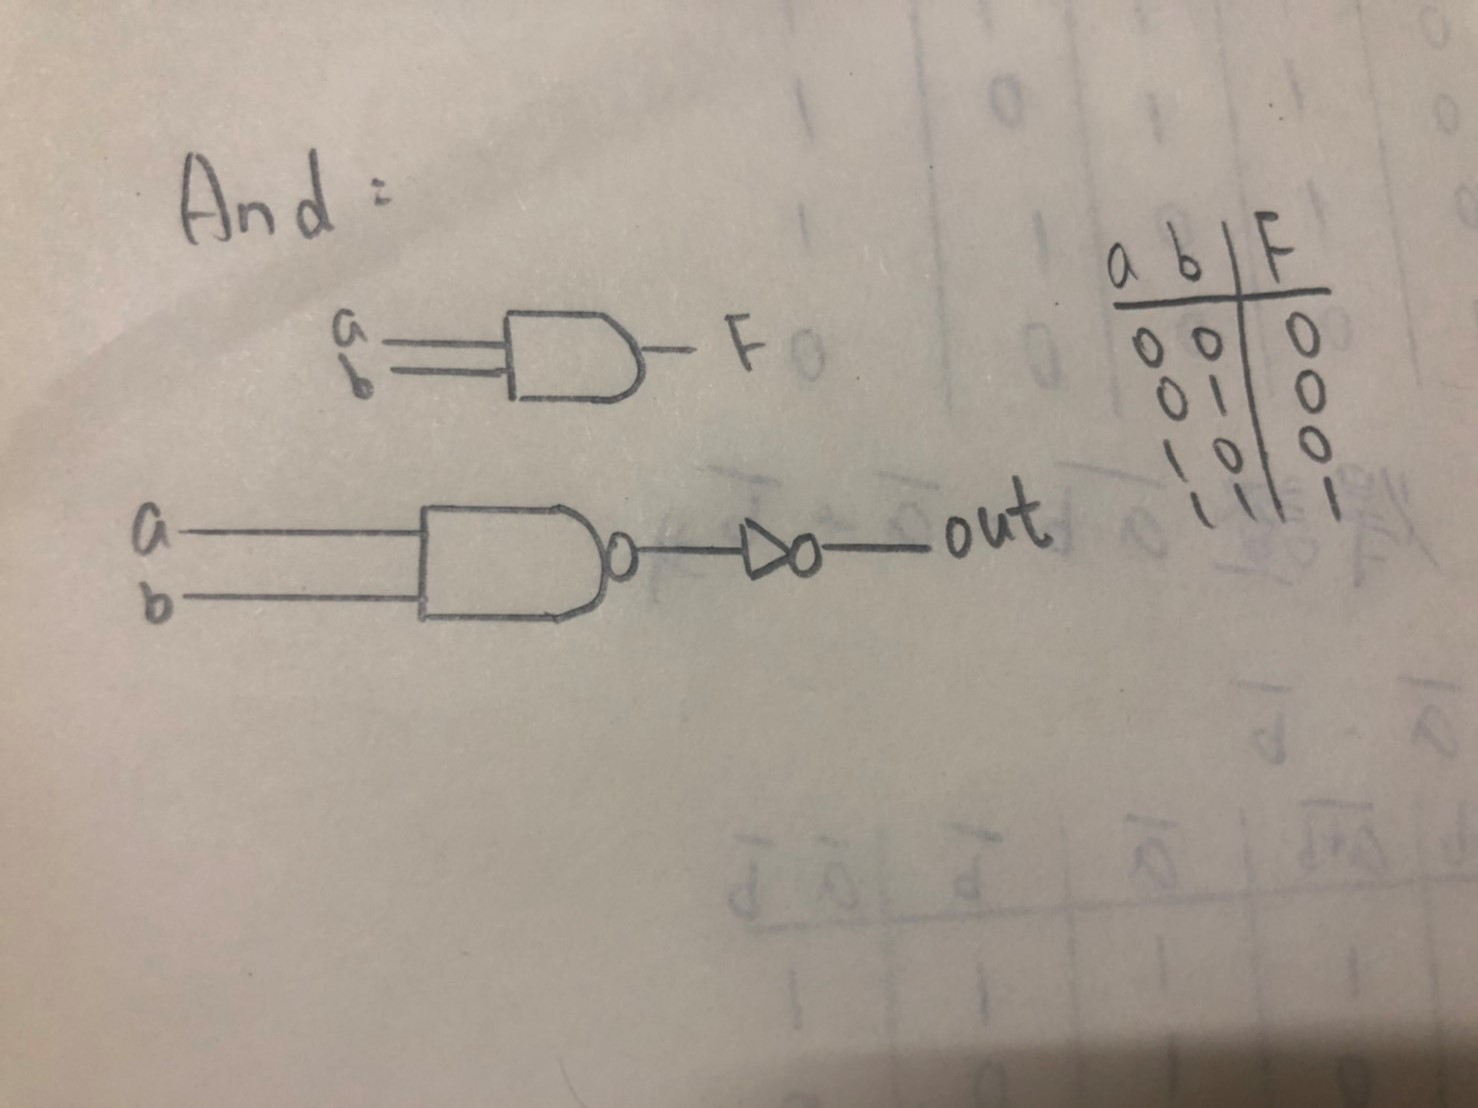 And:
a
b
F
a b F
0 0 0
0 1 0
1 0 0
1 1 1
a
b
out